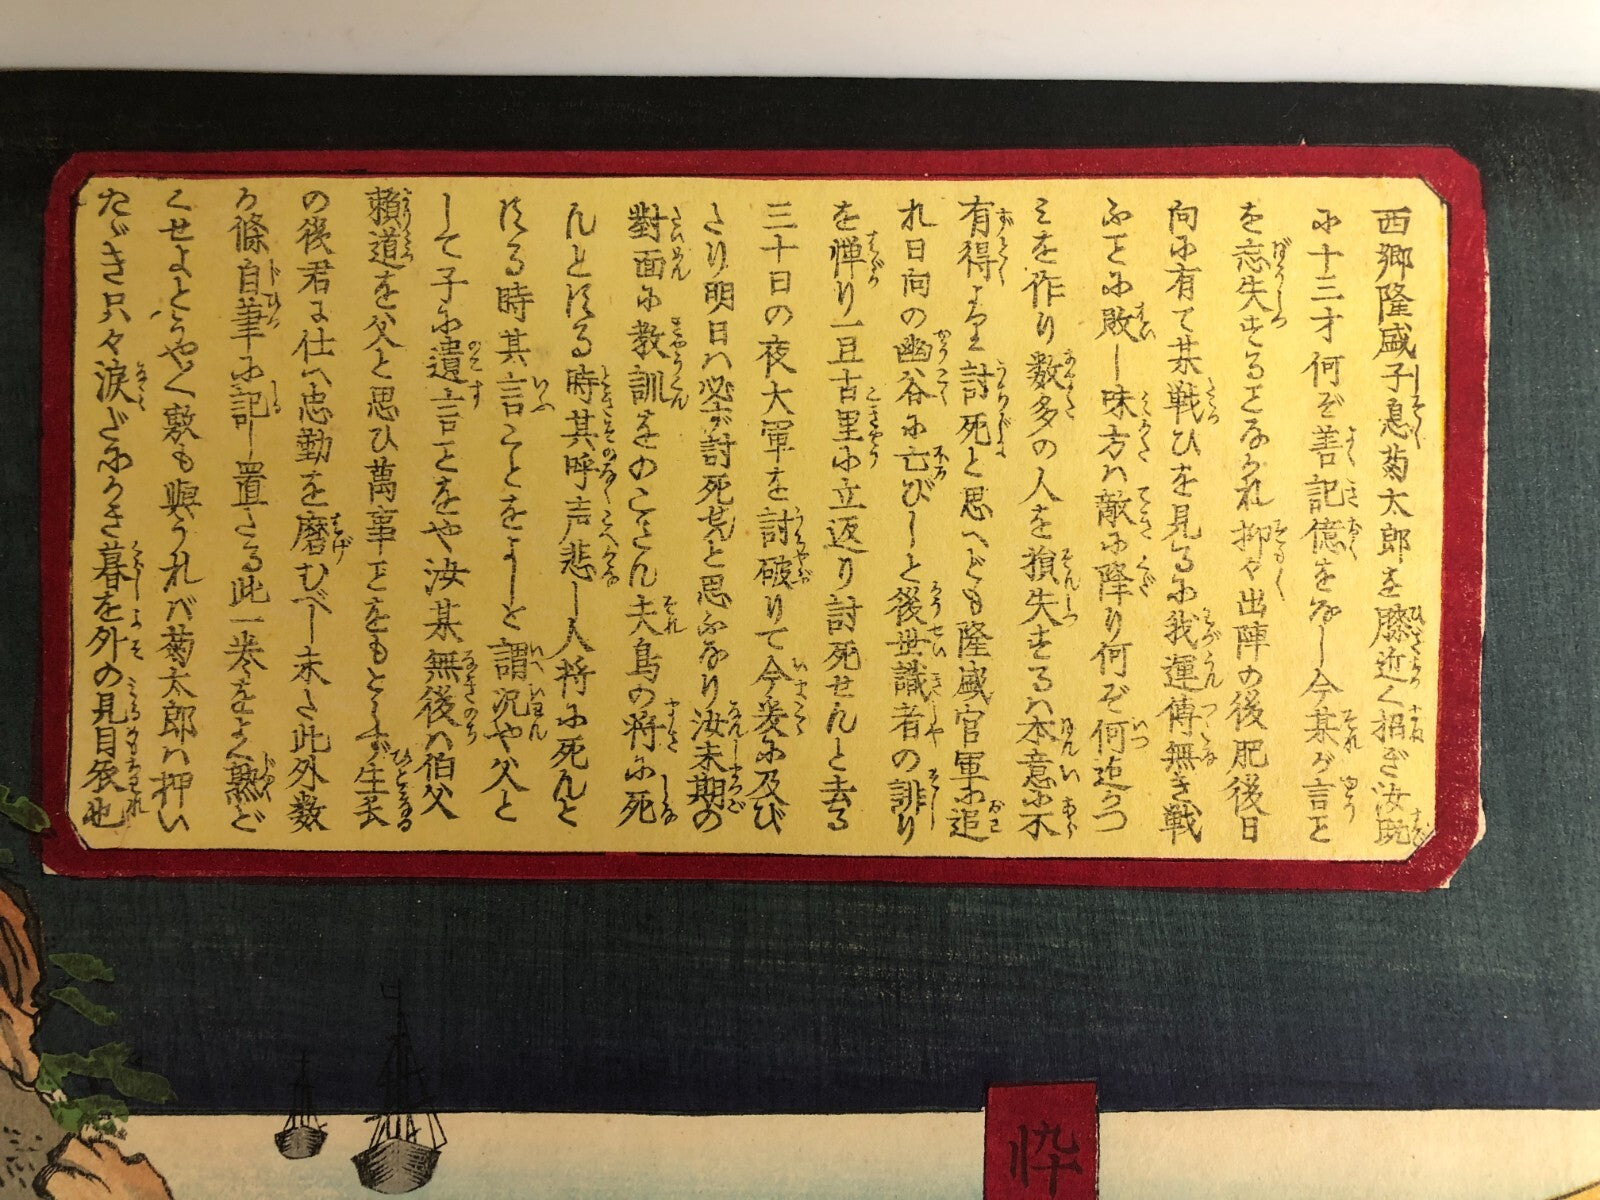 西郷隆盛子息菊太郎を膝近く招ぎ汝既
に十三才何ぞ善記憶をなし今某が言こと
を忘失するとなかれ抑々出陣の後肥後日
向に有て某戦ひを見るに我運傳無き戦
ふごとに敗し味方ハ敵に降り何ぞ何迄かつ
ミを作り数多の人を損失するハ本意に不
有得より討死と思へども隆盛官軍に追
れ日向の幽谷に亡びしと後世識者の誹り
を憚り一旦古里に立返り討死せんと去る
三十日の夜大軍を討破りて今爰に及び
たり明日ハ必ず討死せんと思ふなり汝末期の
對面に教訓をのこさん夫鳥の將に死
んとする時其呼声悲し人将に死んと
する時其言ことをよしと謂況や父と
して子に遺言ことをや汝某無後ハ伯父
頼道を父と思ひ萬事ことをもとらず生長
の後君に仕へ忠勤を磨むべし未た此外数
か條自筆に記し置たる此一巻をよく熟ど
くせよとうやく敷も與うれバ菊太郎ハ押い
たゞき只々涙だにかき暮を外の見目哀也
忰